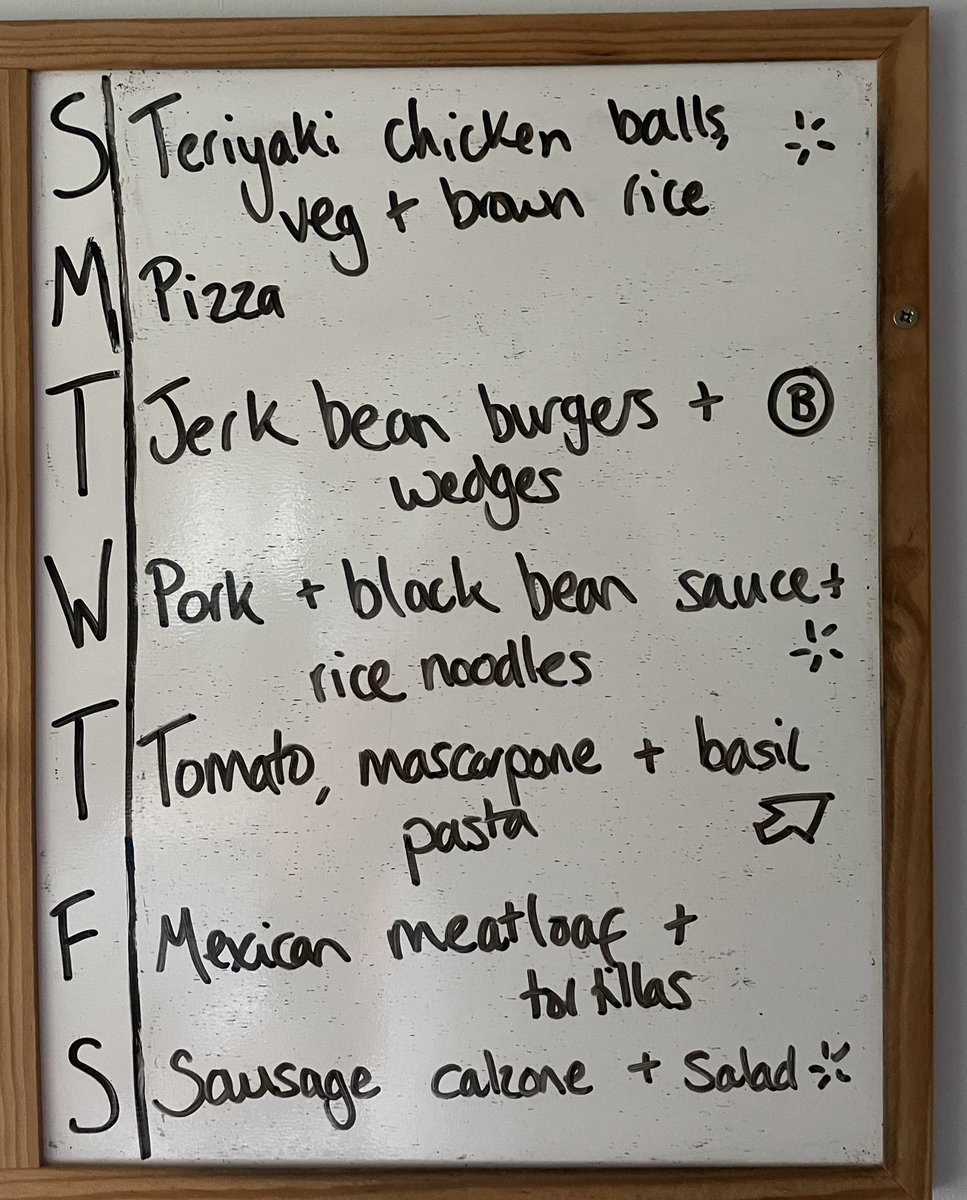 S Teriyaki chicken balls,
veg + brown rice
M Pizza
T Jerk bean burgers + B
wedges
W Pork + black bean sauce +
rice noodles
T Tomato, mascarpone + basil
pasta
F Mexican meatloaf +
tortillas
S Sausage calzone + Salad